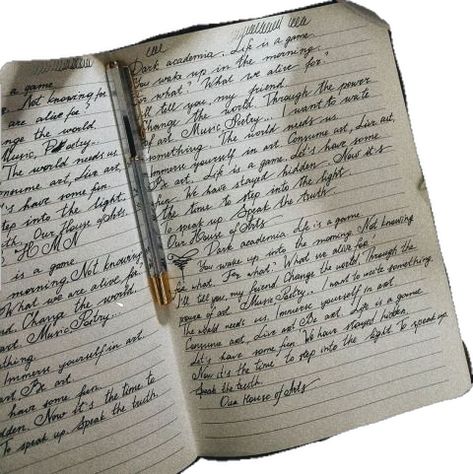 a game.
Not knowing for
are alive for?
nge the world.
Music, Poetry...
The world needs us
onsume art, Live art,
t's have some fun.
tep into the light.
th. Our House of Arts.
HMN
is a game.
morning. Not knowing
What we are alive for?
nd. Change the world.
art Music Poetry...
thing.
Immerse yourself in art.
art Be art.
have some fun.
dden. Now it's the time to
To speak up. Speak the truth.
Dark academia. Life is a game.
You wake up in the morning.
For what? What we alive for?
I'll tell you, my friend.
Change the world. Through the power
of art Music Poetry... I want to write
something. The world needs us.
Immerse yourself in art Consume art, Live art,
Be art. Life is a game. Let's have some
fun. We have stayed hidden. Now it's
the time to step into the light
To speak up Speak the truth
Our House of Arts
Dark academia. Life is a game
You wake up into the morning Not knowing
for what. For what? What we alive for,
I'll tell you, my friend. Change the world. Through the
house of art Music Poetry... I want to write something.
The world needs us. Immerse yourself in art
Consume art, Live art Be art. Life is a game.
Let's have some fun. We have stayed hidden.
Now it's the time to step into the light To speak up
Speak the truth.
Our House of Arts